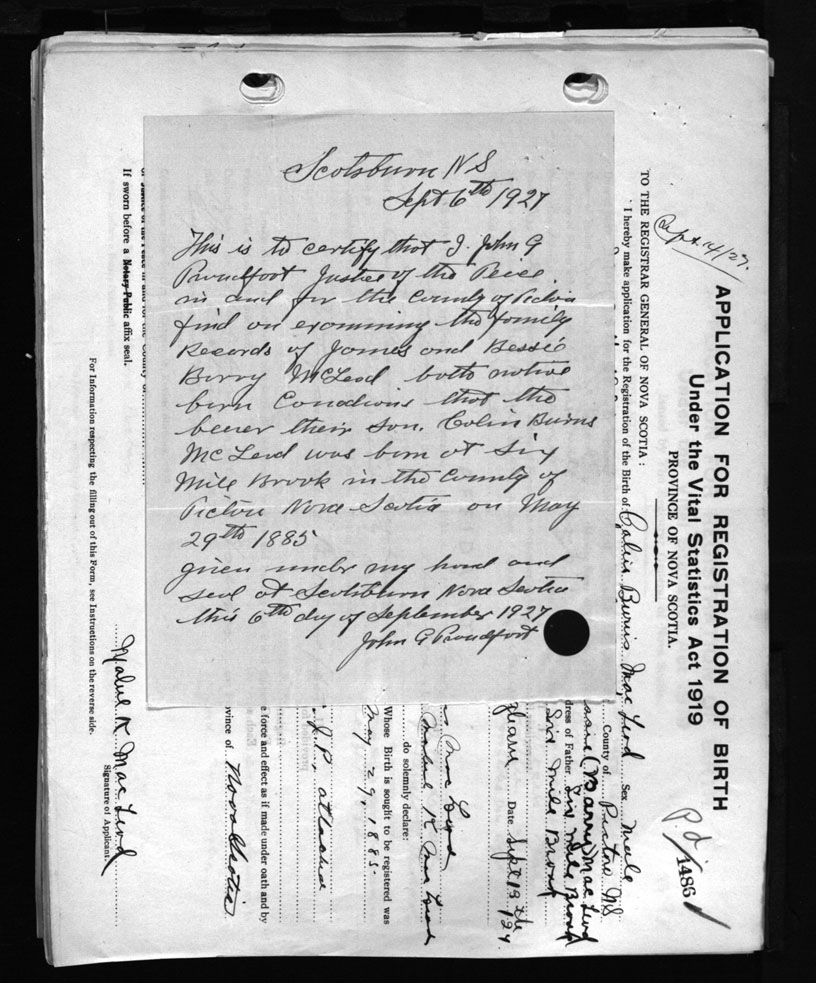 Scotsburn N S
Sept 6th 1927
This is to certify that I. John G
Proudfoot Justice of the Peice
in and for the County of Pictou
find on examining the family
Records of James and Bessie
Berry McLeod both native
born Canadians that the
bearer their son. Colin Burns
McLeod was born at Six
Mile Brook in the County of
Pictou Nova Scotia on May
29th 1885
given under my hand and
seal at Scotsburn Nova Scotia
this 6th day of September 1927
John G Proudfoot
APPLICATION FOR REGISTRATION OF BIRTH
Under the Vital Statistics Act 1919
PROVINCE OF NOVA SCOTIA.
Sept. 14/27.
Pd. 1486
TO THE REGISTRAR GENERAL OF NOVA SCOTIA :
I hereby make application for the Registration of the Birth of Colin Burns MacLeod Sex Male
County of Pictou NS
(Barry) MacLeod
dress of Father Six Mile Brook
Six Mile Brook
Date Sept 13th
Mabel K MacLeod
do solemnly declare:
Whose Birth is sought to be registered was
May 29, 1885.
J.P., attached
e force and effect as if made under oath and by
vince of Nova Scotia
or Justice of the Peace in and for the County of
If sworn before a Notary Public affix seal.
Mabel K MacLeod
Signature of Applicant.
For Information respecting the filling out of this Form, see Instructions on the reverse side.